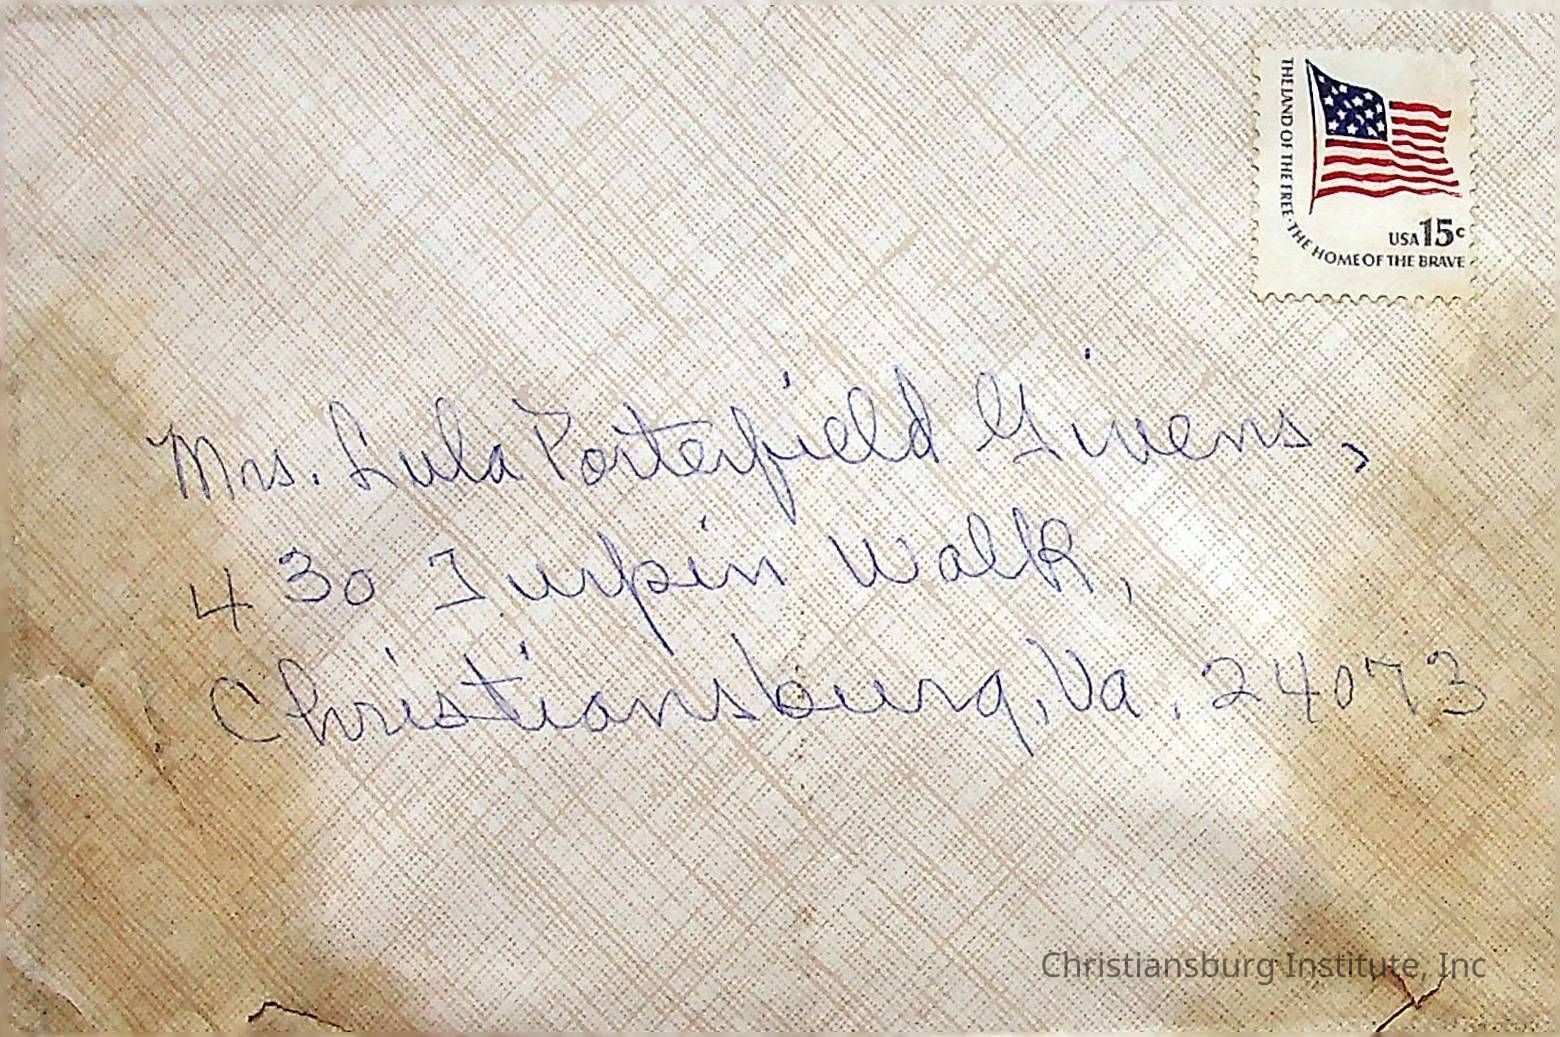 THE LAND OF THE FREE · THE HOME OF THE BRAVE
USA 15c
Mrs. Lula Porterfield Givens,
430 Turpin Walk,
Christiansburg, Va. 24073
Christiansburg Institute, Inc